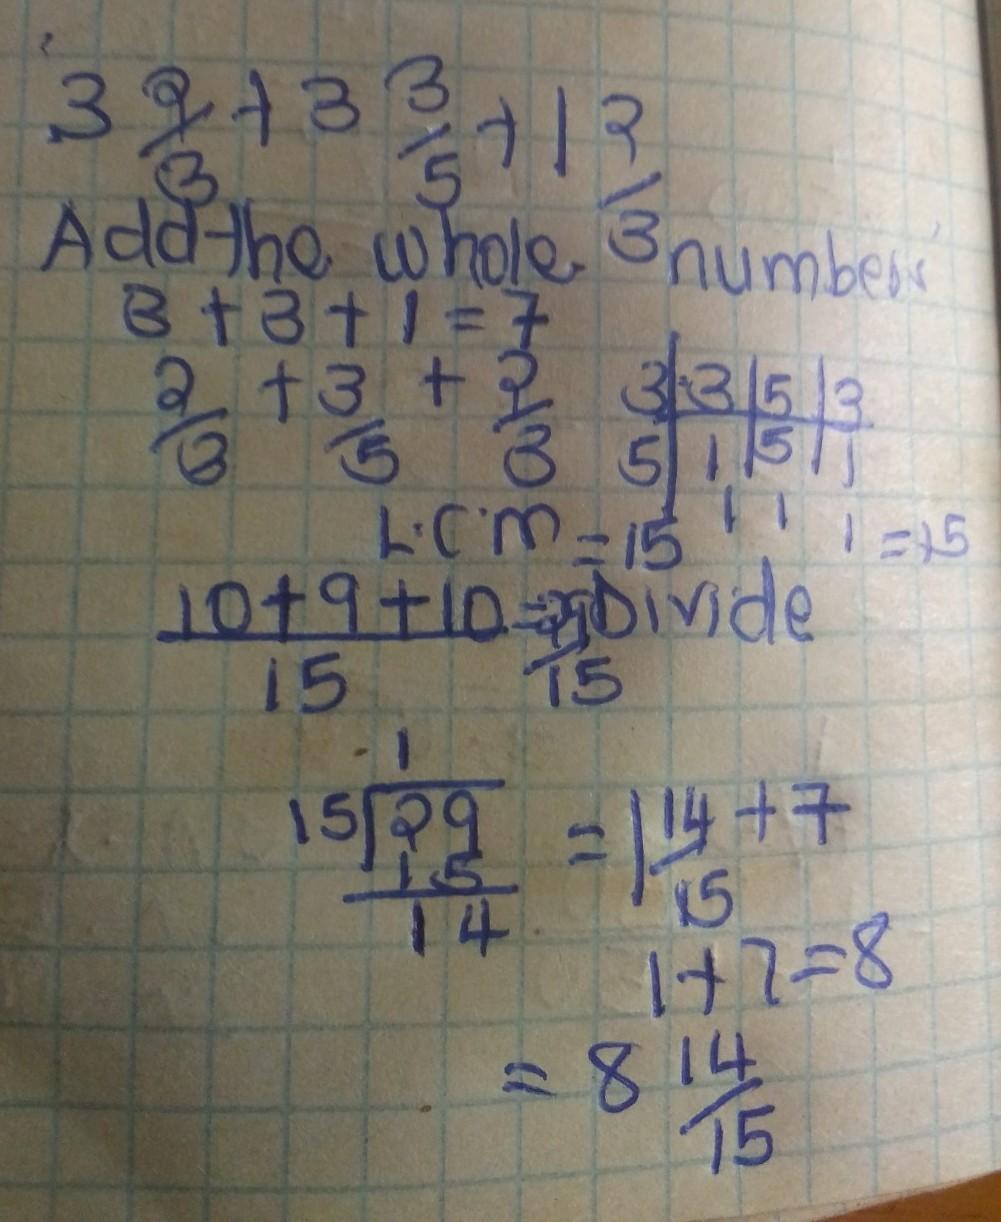 3 2/3 + 3 3/5 + 1 2/3
Add the whole numbers
3 + 3 + 1 = 7
2/3 + 3/5 + 2/3
3 | 3 | 5 | 3
5 | 1 | 5 | 1
1 1 1 = 15
L.C.M = 15
10 + 9 + 10 / 15 = 29/15 Divide
1
15 √29 = 1 14/15 + 7
15
14
1 + 7 = 8
= 8 14/15